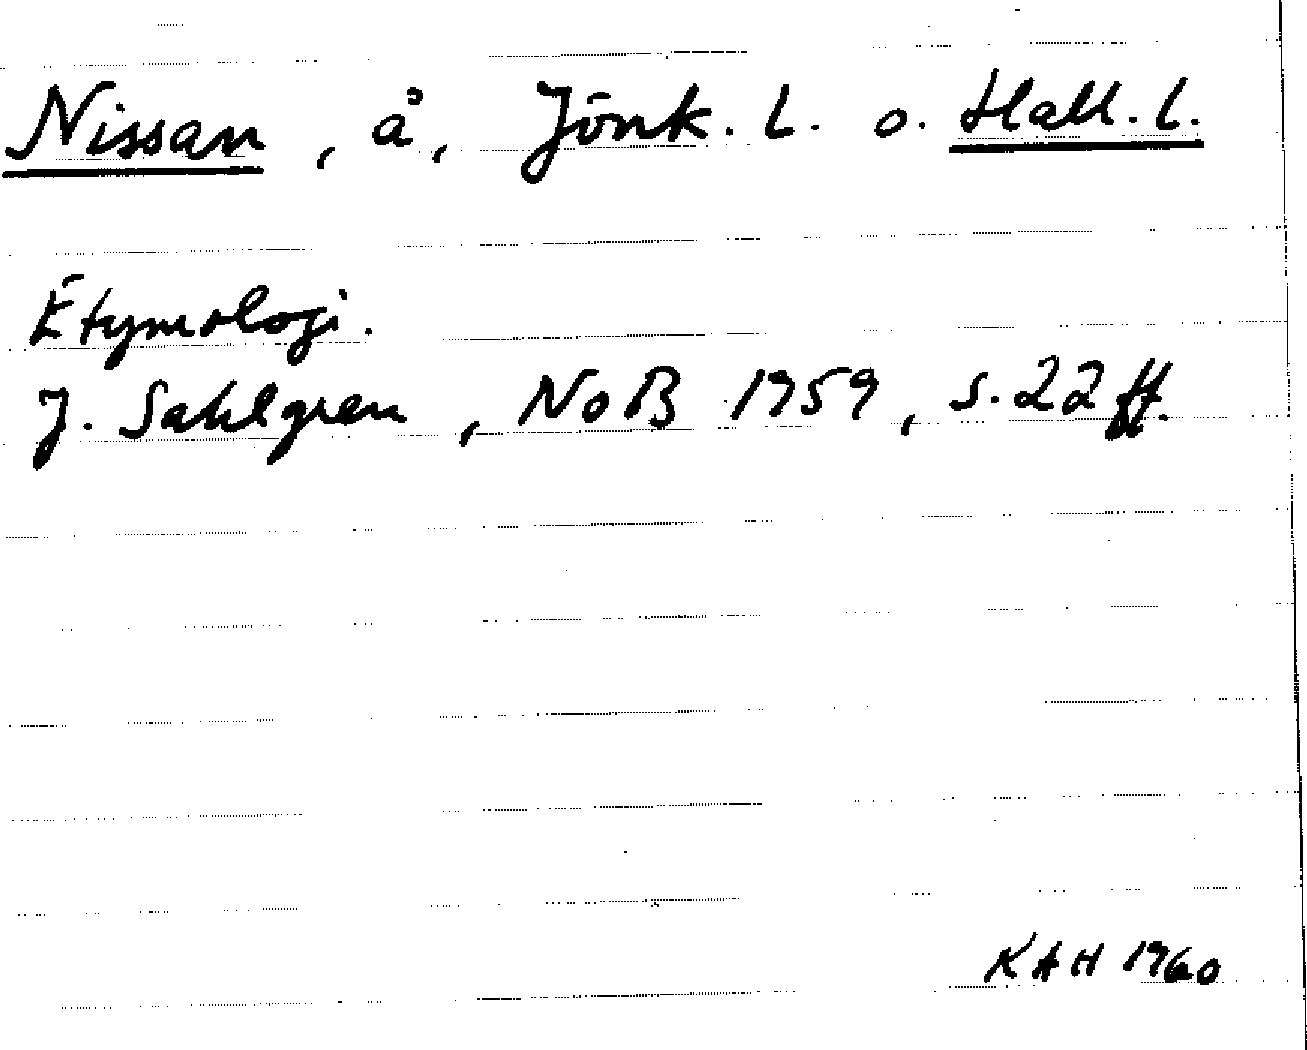 Nissan, å, Jönk. l. o. Hall. l.
Etymologi.
J. Sahlgren, NoB 1959, s. 22 ff.
KAH 1960